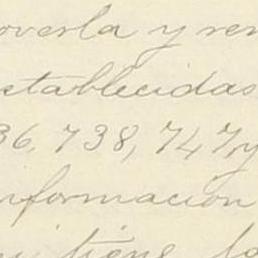 overla y ren
stablecidas
36, 738, 747, y
nformacion
tiene la